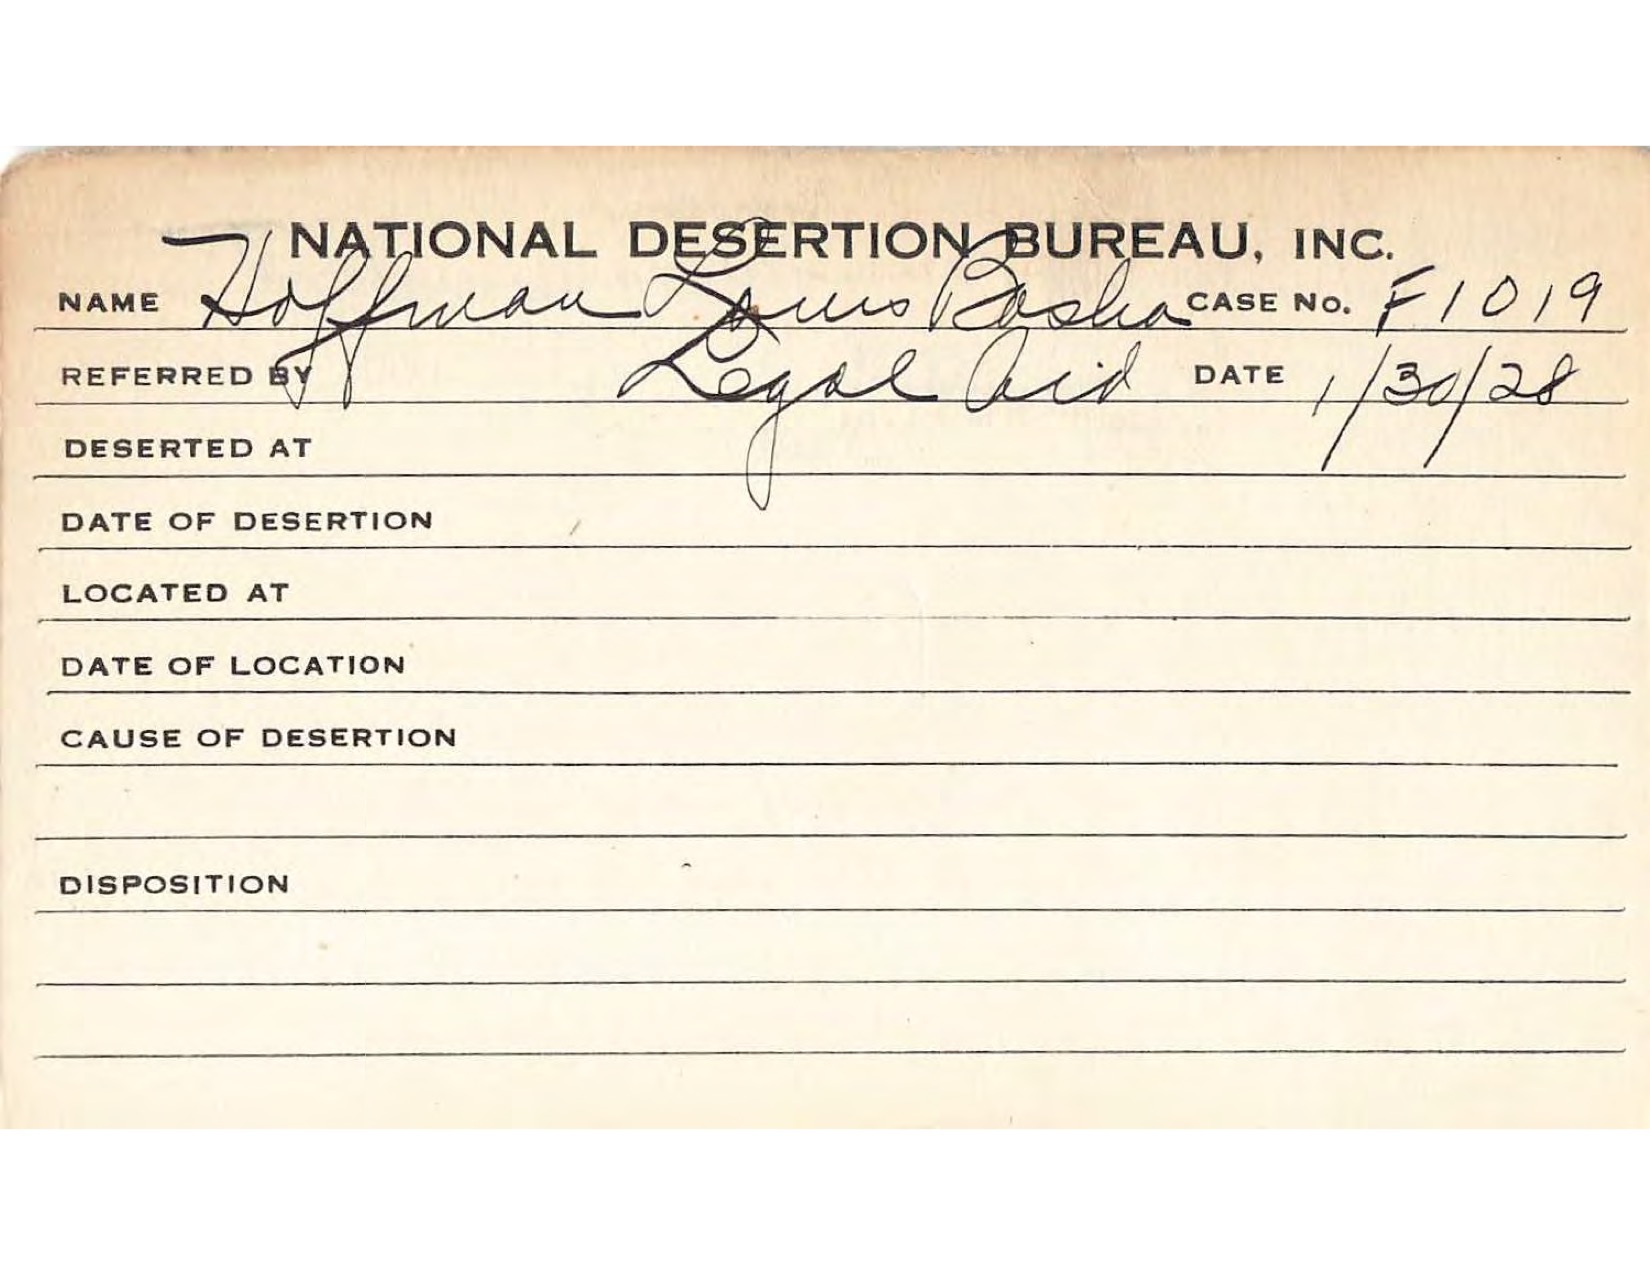 NATIONAL DESERTION BUREAU, INC.
NAME Hoffman Louis Basha CASE NO. F1019
REFERRED BY Legal Aid DATE 1/30/28
DESERTED AT
DATE OF DESERTION
LOCATED AT
DATE OF LOCATION
CAUSE OF DESERTION
DISPOSITION